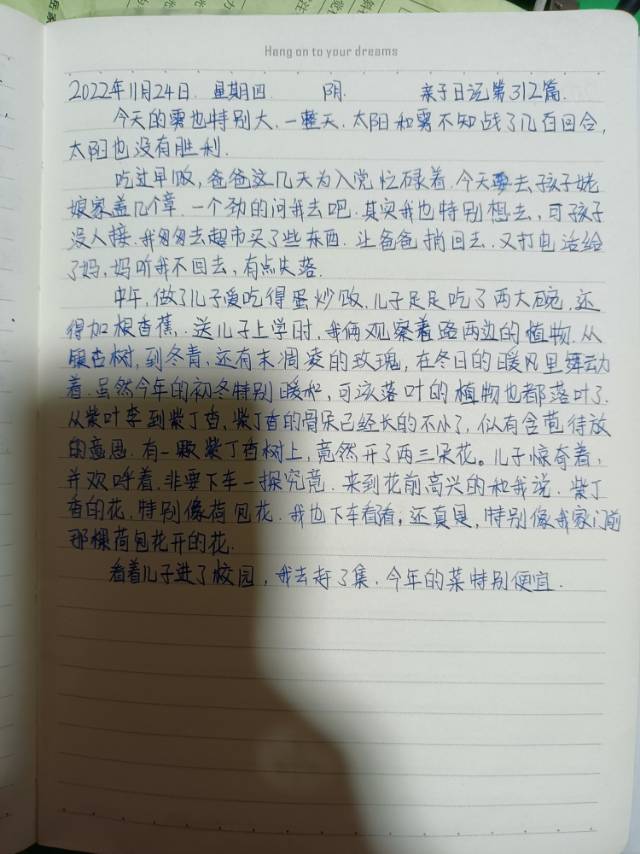 Hang on to your dreams
2022年11月24日 星期四 阴. 亲子日记第312篇.
今天的雾也特别大.一整天.太阳和雾不知战了几百回合,
太阳也没有胜利.
吃过早饭,爸爸这几天为入党忙碌着.今天要去孩子姥
娘家盖几个章.一个劲的问我去吧.其实我也特别想去,可孩子
没人接.我匆匆去超市买了些东西.让爸爸捎回去.又打电话给
了妈,妈听我不回去,有点失落.
中午,做了儿子爱吃得蛋炒饭.儿子足足吃了两大碗.还
得加根香蕉.送儿子上学时,我俩观察着路两边的植物.从
银杏树,到冬青.还有未凋凌的玫瑰,在冬日的暖风里舞动
着.虽然今年的初冬特别暖和,可该落叶的植物也都落叶了.
从紫叶李到紫丁香,紫丁香的骨朵已经长的不小了,似有含苞待放
的意思.有一颗紫丁香树上,竟然开了两三朵花。儿子惊奇着,
并欢呼着.非要下车一探究竟.来到花前高兴的和我说.紫丁
香的花.特别像荷包花.我也下车看看,还真是,特别像我家门前
那棵荷包花开的花.
看着儿子进了校园,我去赶了集.今年的菜特别便宜.